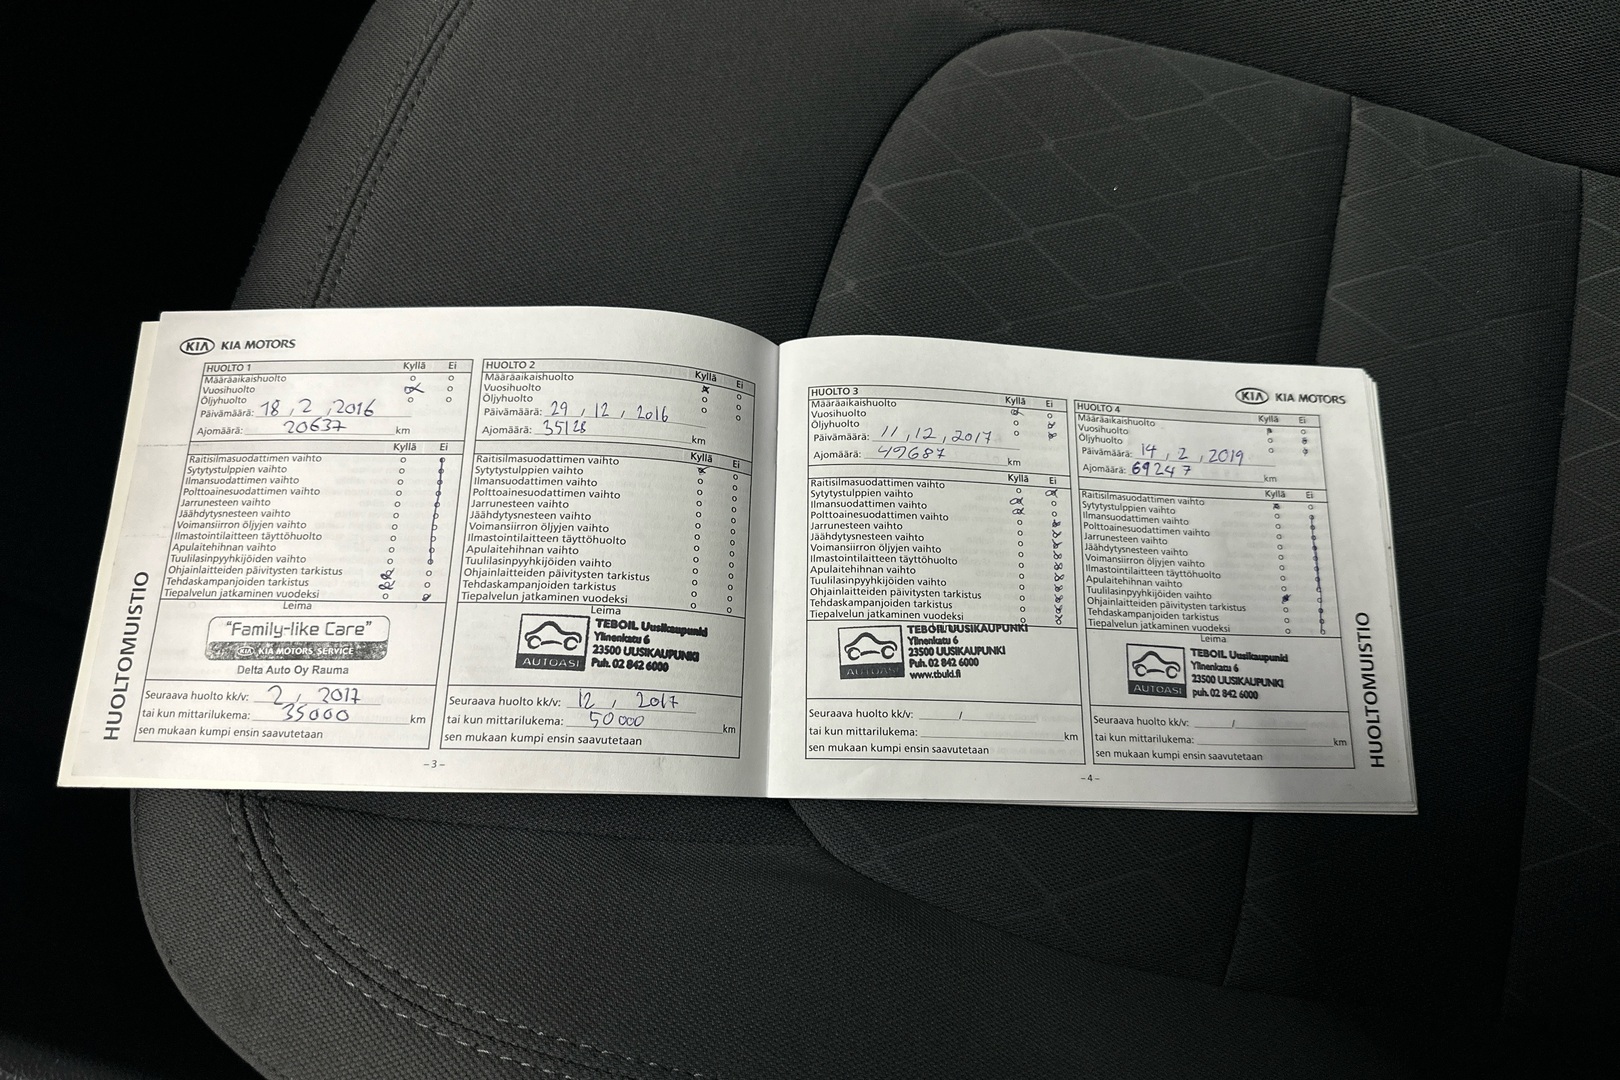 KIA KIA MOTORS
HUOLTO 1 Kyllä Ei
Määräaikaishuolto
Vuosihuolto
Öljyhuolto
Päivämäärä: 18 , 2 , 2016
Ajomäärä: 20637 km
Kyllä Ei
Raitisilmasuodattimen vaihto
Sytytystulppien vaihto
Ilmansuodattimen vaihto
Polttoainesuodattimen vaihto
Jarrunesteen vaihto
Jäähdytysnesteen vaihto
Voimansiirron öljyjen vaihto
Ilmastointilaitteen täyttöhuolto
Apulaitehihnan vaihto
Tuulilasinpyyhkijöiden vaihto
Ohjainlaitteiden päivitysten tarkistus
Tehdaskampanjoiden tarkistus
Tiepalvelun jatkaminen vuodeksi
Leima
"Family-like Care"
KIA KIA MOTORS SERVICE
Delta Auto Oy Rauma
Seuraava huolto kk/v: 2 , 2017
tai kun mittarilukema: 35000 km
sen mukaan kumpi ensin saavutetaan
HUOLTOMUISTIO
HUOLTO 2 Kyllä Ei
Määräaikaishuolto
Vuosihuolto
Öljyhuolto
Päivämäärä: 29 , 12 , 2016
Ajomäärä: 35128 km
Kyllä Ei
Raitisilmasuodattimen vaihto
Sytytystulppien vaihto
Ilmansuodattimen vaihto
Polttoainesuodattimen vaihto
Jarrunesteen vaihto
Jäähdytysnesteen vaihto
Voimansiirron öljyjen vaihto
Ilmastointilaitteen täyttöhuolto
Apulaitehihnan vaihto
Tuulilasinpyyhkijöiden vaihto
Ohjainlaitteiden päivitysten tarkistus
Tehdaskampanjoiden tarkistus
Tiepalvelun jatkaminen vuodeksi
Leima
AUTOASI
TEBOIL Uusikaupunki
Ylinenkatu 6
23500 UUSIKAUPUNKI
Puh. 02 842 6000
Seuraava huolto kk/v: 12 , 2017
tai kun mittarilukema: 50000 km
sen mukaan kumpi ensin saavutetaan
-3-
HUOLTO 3 Kyllä Ei
Määräaikaishuolto
Vuosihuolto
Öljyhuolto
Päivämäärä: 11 , 12 , 2017
Ajomäärä: 49687 km
Kyllä Ei
Raitisilmasuodattimen vaihto
Sytytystulppien vaihto
Ilmansuodattimen vaihto
Polttoainesuodattimen vaihto
Jarrunesteen vaihto
Jäähdytysnesteen vaihto
Voimansiirron öljyjen vaihto
Ilmastointilaitteen täyttöhuolto
Apulaitehihnan vaihto
Tuulilasinpyyhkijöiden vaihto
Ohjainlaitteiden päivitysten tarkistus
Tehdaskampanjoiden tarkistus
Tiepalvelun jatkaminen vuodeksi
AUTOASI
TEBOIL UUSIKAUPUNKI
Ylinenkatu 6
23500 UUSIKAUPUNKI
Puh. 02 842 6000
www.tbuki.fi
Seuraava huolto kk/v: /
tai kun mittarilukema: km
sen mukaan kumpi ensin saavutetaan
KIA KIA MOTORS
HUOLTO 4 Kyllä Ei
Määräaikaishuolto
Vuosihuolto
Öljyhuolto
Päivämäärä: 14 , 2 , 2019
Ajomäärä: 69247 km
Kyllä Ei
Raitisilmasuodattimen vaihto
Sytytystulppien vaihto
Ilmansuodattimen vaihto
Polttoainesuodattimen vaihto
Jarrunesteen vaihto
Jäähdytysnesteen vaihto
Voimansiirron öljyjen vaihto
Ilmastointilaitteen täyttöhuolto
Apulaitehihnan vaihto
Tuulilasinpyyhkijöiden vaihto
Ohjainlaitteiden päivitysten tarkistus
Tehdaskampanjoiden tarkistus
Tiepalvelun jatkaminen vuodeksi
Leima
AUTOASI
TEBOIL Uusikaupunki
Ylinenkatu 6
23500 UUSIKAUPUNKI
puh. 02 842 6000
Seuraava huolto kk/v: /
tai kun mittarilukema: km
sen mukaan kumpi ensin saavutetaan
-4-
HUOLTOMUISTIO